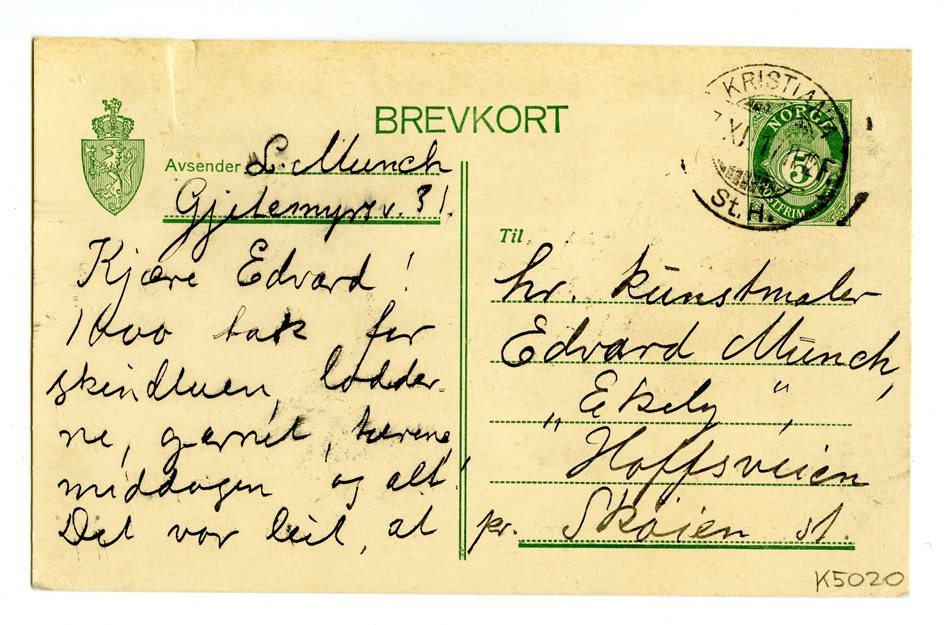 BREVKORT
KRISTIANIA
XI
St. H.
NORGE
5
POSTFRIM.
Avsender L. Munch
Gjetemyrsv. 31.
Kjære Edvard!
1000 tak for
skindluen, lodder-
ne, garnet, turene,
middagen og alt!
Det var leit, at
Til
hr. kunstmaler
Edvard Munch,
„Ekely“,
Hoffsveien
pr. Skøien st.
K5020